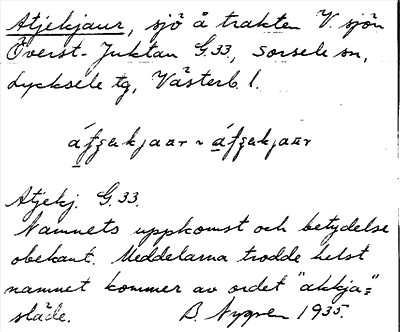 Atjekjaur, sjö å trakten V. sjön
Överst-Juktan G.33., Sorsele sn,
Lycksele tg, Västerb. l.
Atjekj. G.33.
Namnets uppkomst och betydelse
obekant. Meddelarna trodde helst
namnet kommer av ordet "akkja"=
släde. B. Nygren 1935.